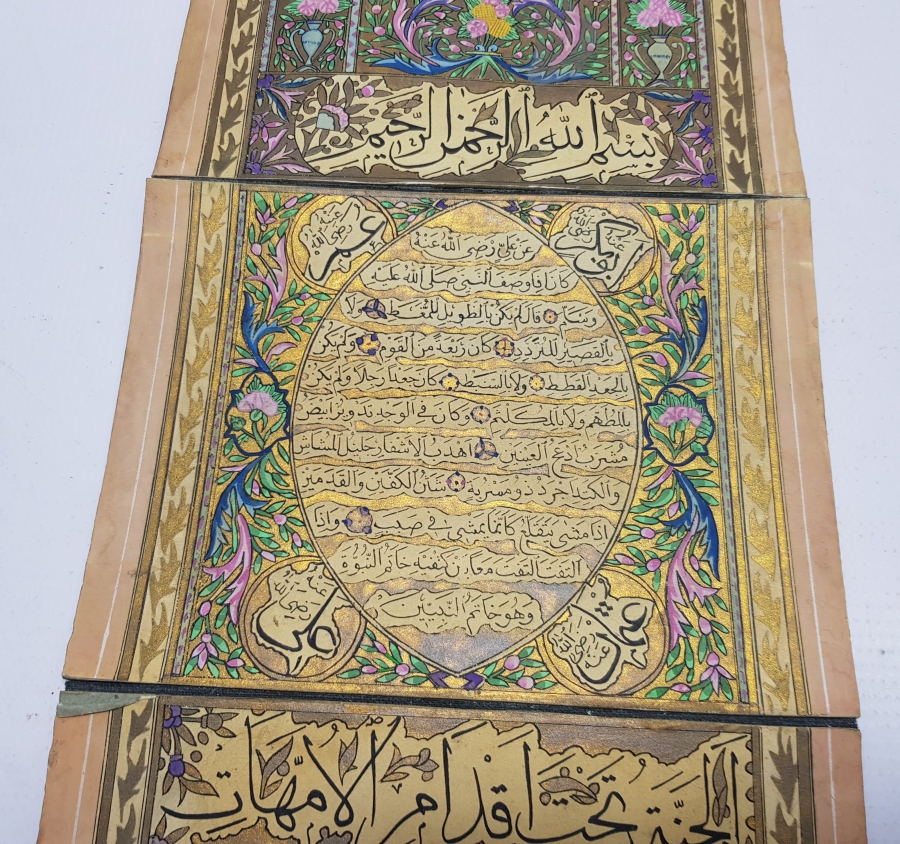 بسم الله الرحمن الرحيم
ابو بكر رضي الله عنه
عمر رضي الله عنه
عن علي رضى الله عنه
كان اذا وصف النبي صلى الله عليه
وسلم قال لم يكن بالطويل الممغط ولا
بالقصير المتردد كان ربعة من القوم ولم يكن
بالجعد القطط ولا بالسبط كان جعدا رجلا ولم يكن
بالمطهم ولا بالمكلثم وكان في الوجه تدوير ابيض
مشرب ادعج العينين اهدب الاشفار جليل المشاش
والكتد اجرد ذو مسربة شثن الكفين والقدمين
اذا مشى يتقلع كانما يمشي في صبب واذا
التفت التفت معا بين كتفيه خاتم النبوة
وهو خاتم النبيين
عثمان رضي الله عنه
علي رضي الله عنه
الجنة تحت اقدام الامهات